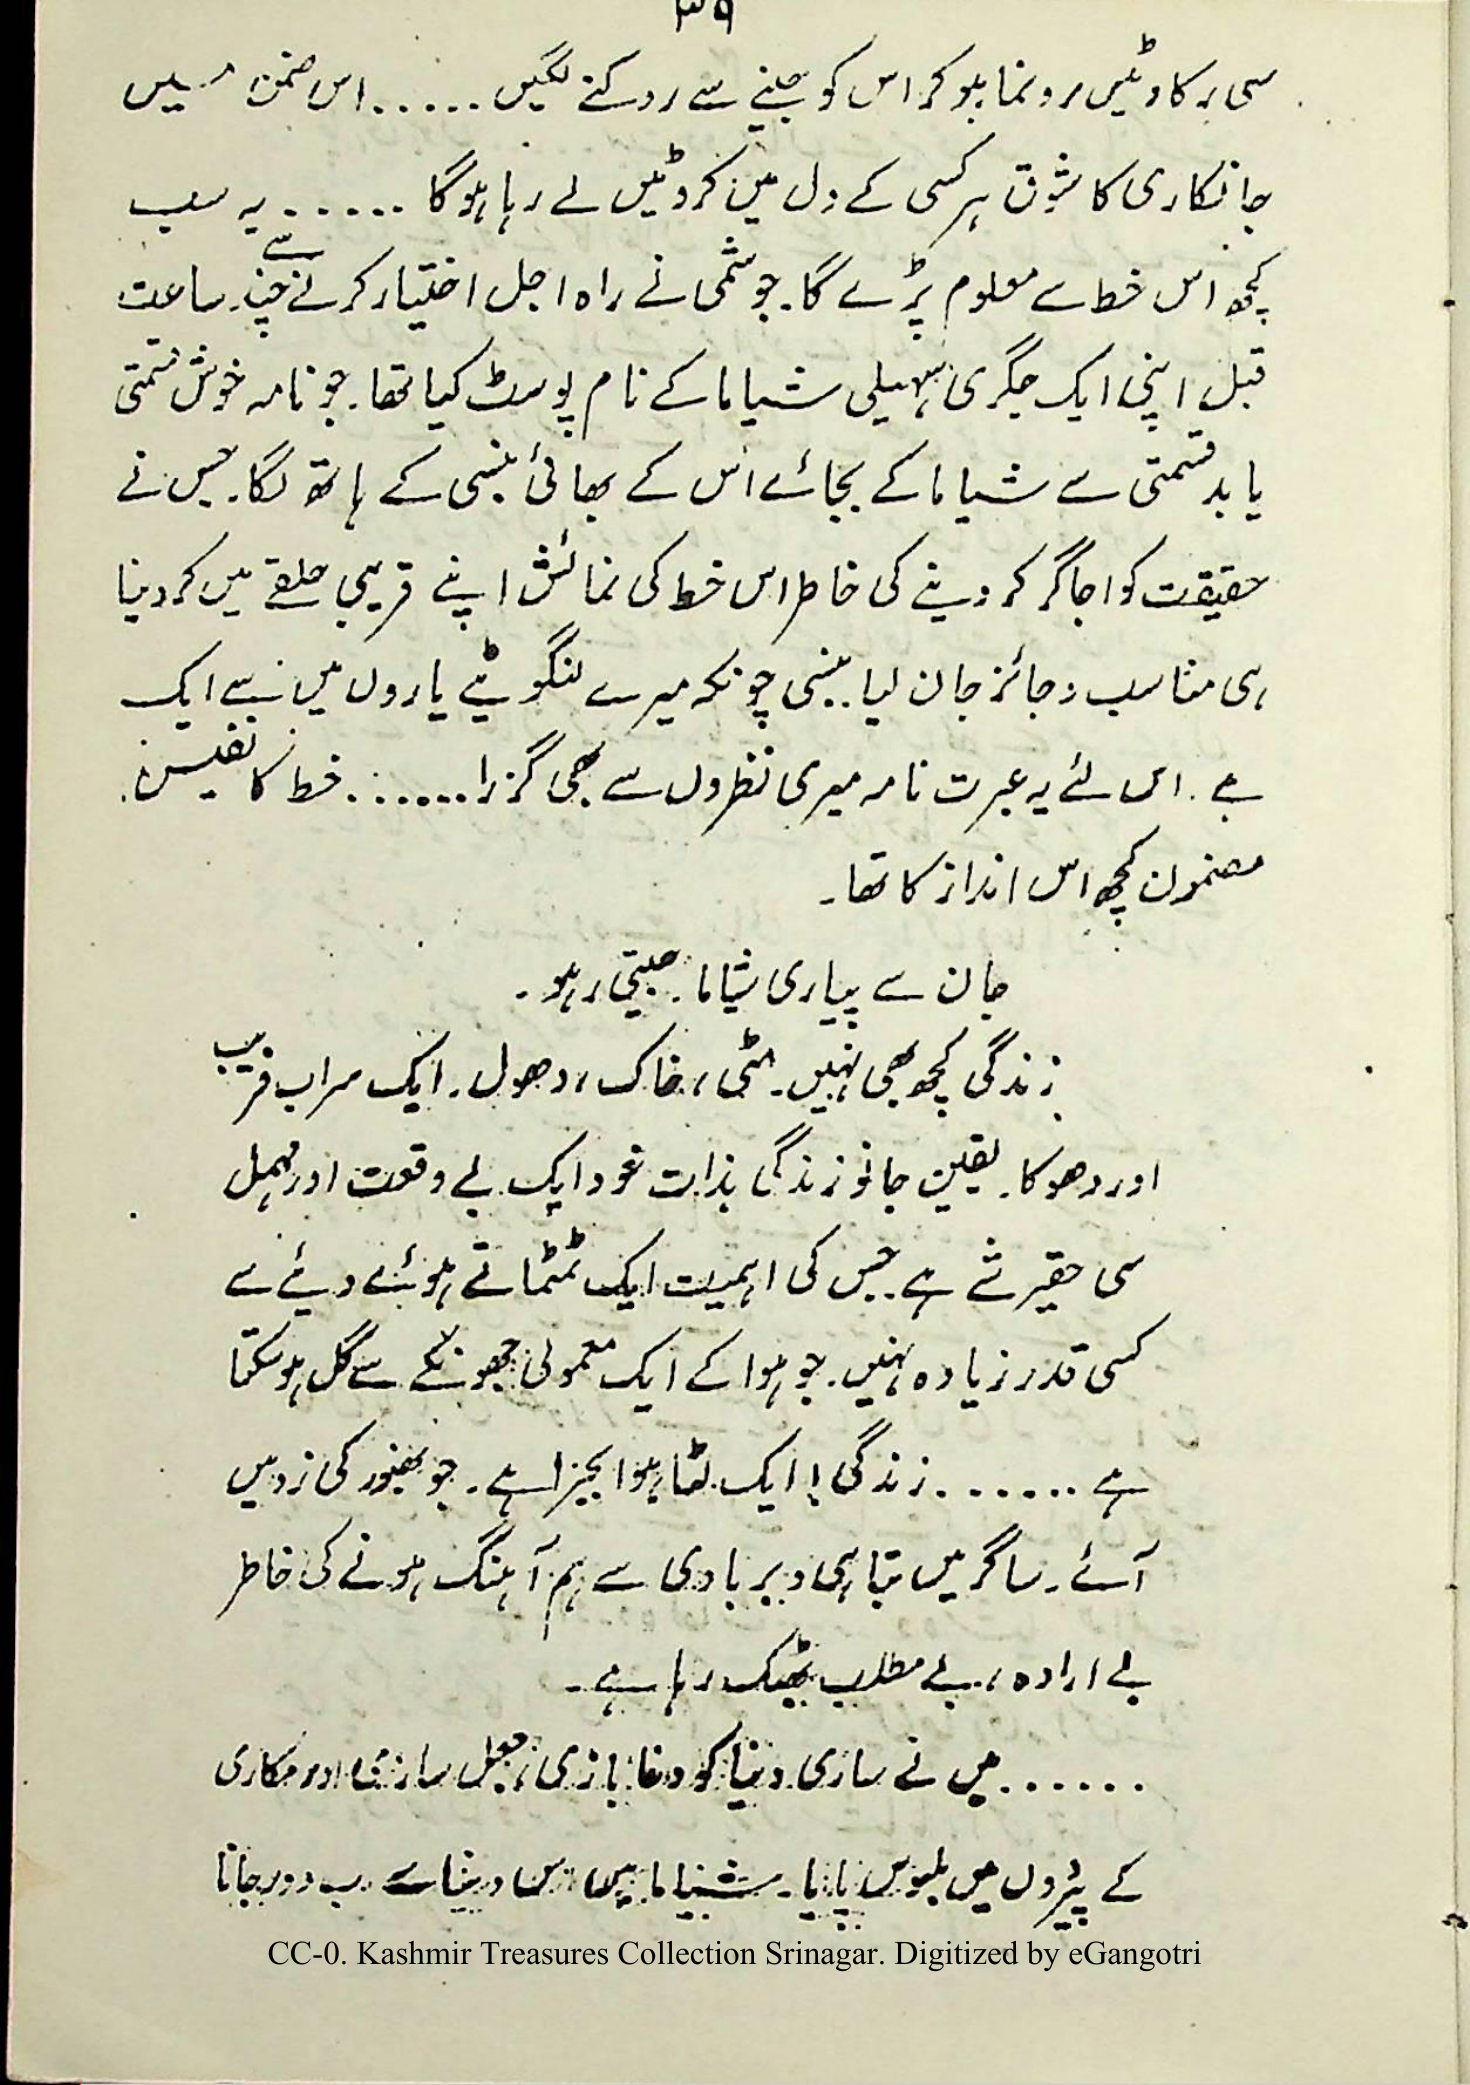 ۳۹
سی رکاوٹیں رونما ہو کر اس کو جینے سے روکنے لگیں ...... اس ضمن میں
جانکاری کا شوق ہر کسی کے دل میں کروٹیں لے رہا ہوگا ...... یہ سب
کچھ اس خط سے معلوم پڑے گا۔ جو شمی نے راہ اجل اختیار کرنے سے چند ساعت
قبل اپنی ایک جگری سہیلی شیاما کے نام پوسٹ کیا تھا۔ جو نامہ خوش قسمتی
یا بدقسمتی سے شیاما کے بجائے اس کے بھائی بنسی کے ہاتھ لگا۔ جس نے
حقیقت کو اجاگر کر دینے کی خاطر اس خط کی نمائش اپنے قریبی حلقے میں کر دینا
ہی مناسب و جائز جان لیا۔ بنسی چونکہ میرے لنگوٹیے یاروں میں سے ایک
ہے۔ اس لئے یہ عبرت نامہ میری نظروں سے بھی گزرا ...... خط کا نفس
مضمون کچھ اس انداز کا تھا۔
جان سے پیاری شیاما۔ جیتی رہو۔
زندگی کچھ بھی نہیں۔ مٹی، خاک، دھول۔ ایک سراب فریب
اور دھوکا۔ یقین جانو زندگی بذات خود ایک بے وقعت اور مہمل
سی حقیر شے ہے۔ جس کی اہمیت ایک ٹمٹماتے ہوئے دیئے سے
کسی قدر زیادہ نہیں۔ جو ہوا کے ایک معمولی جھونکے سے گل ہو سکتا
ہے ...... زندگی! ایک لٹا ہوا بجرا ہے۔ جو بھنور کی زد میں
آئے۔ ساگر میں تباہی و بربادی سے ہم آہنگ ہونے کی خاطر
بے ارادہ، بے مطلب بھٹک رہا ہے۔
...... میں نے ساری دنیا کو دغا بازی، جعل سازی اور مکاری
کے پیڑوں میں ملبوس پایا۔ شیاما میں اس دنیا سے اب دور جانا
CC-0. Kashmir Treasures Collection Srinagar. Digitized by eGangotri